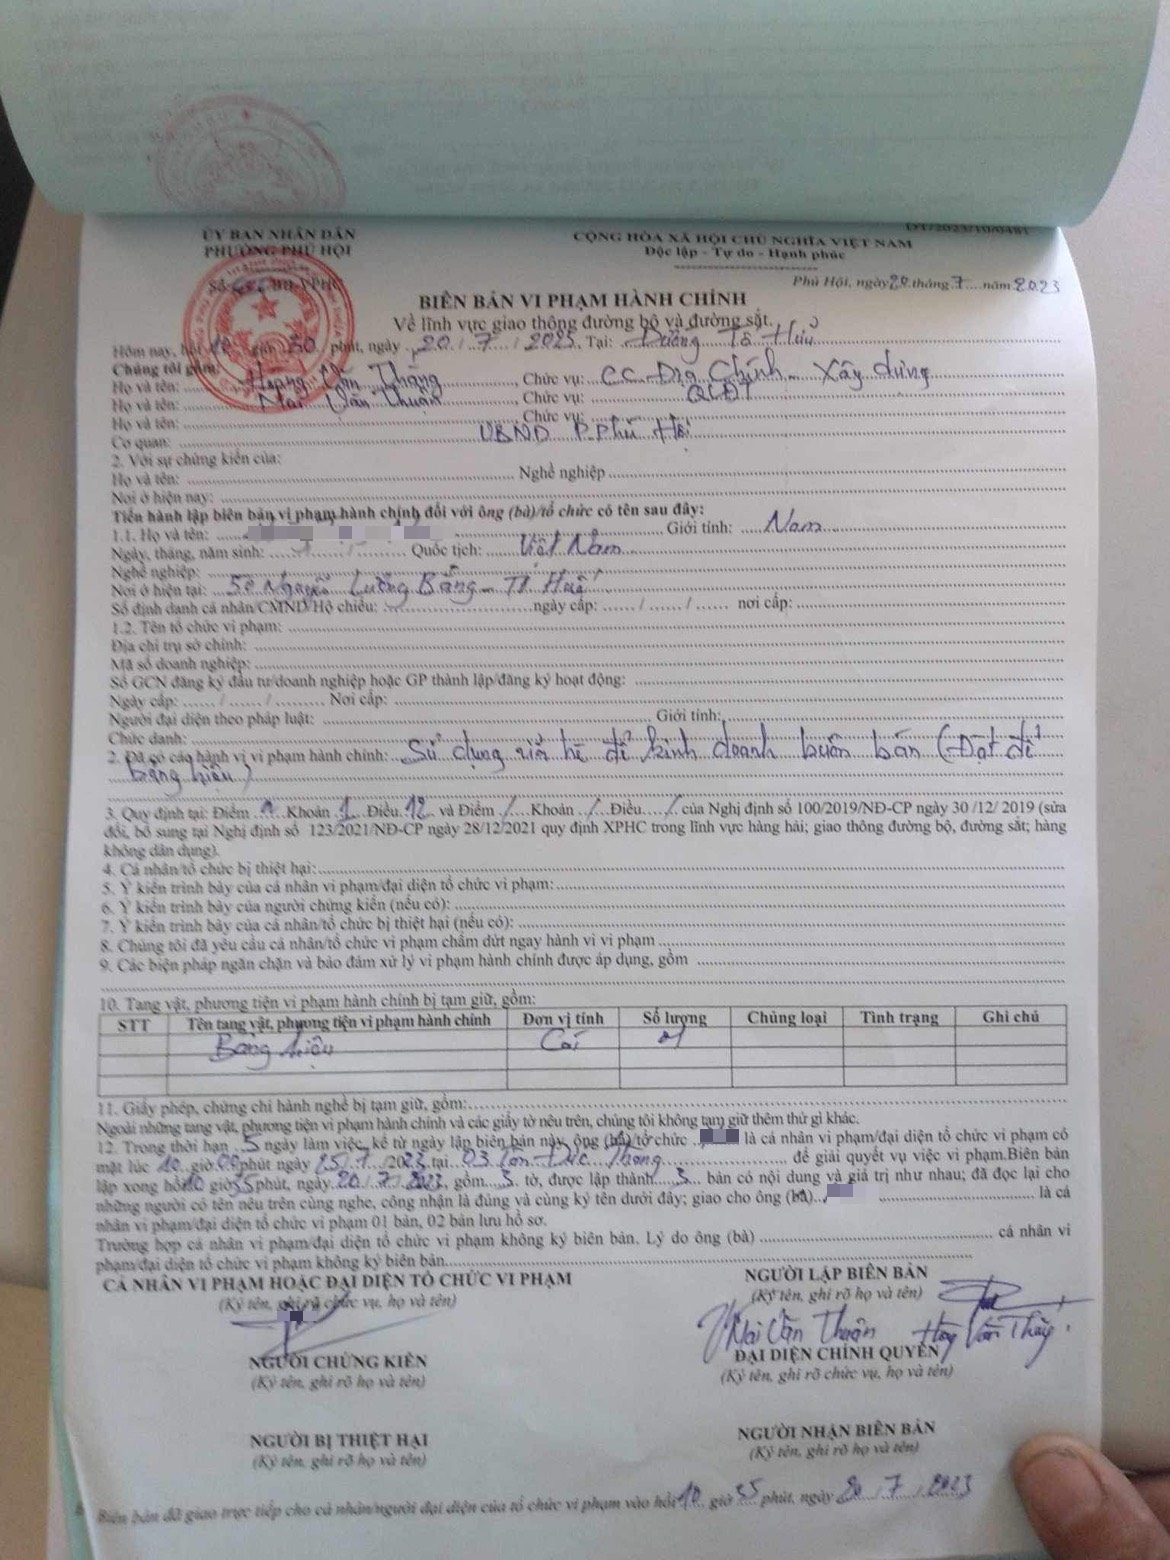 ỦY BAN NHÂN DÂN
PHƯỜNG PHÚ HỘI
CỘNG HÒA XÃ HỘI CHỦ NGHĨA VIỆT NAM
Độc lập - Tự do - Hạnh phúc
Phú Hội, ngày 20 tháng 7 năm 2023
BIÊN BẢN VI PHẠM HÀNH CHÍNH
Về lĩnh vực giao thông đường bộ và đường sắt.
Hôm nay, hồi 10 giờ 30 phút, ngày 20/7/2023, Tại: Đường Tố Hữu
Chúng tôi gồm:
Họ và tên: Hoàng Văn Thắng, Chức vụ: CC Địa Chính - Xây dựng
Họ và tên: Mai Văn Thuận, Chức vụ: QLĐT
Họ và tên: Chức vụ:
Cơ quan: UBND P. Phú Hội
2. Với sự chứng kiến của:
Họ và tên: Nghề nghiệp
Nơi ở hiện nay:
Tiến hành lập biên bản vi phạm hành chính đối với ông (bà)/tổ chức có tên sau đây:
1.1. Họ và tên: Giới tính: Nam
Ngày, tháng, năm sinh: / / Quốc tịch: Việt Nam
Nghề nghiệp:
Nơi ở hiện tại: 50 Nguyễn Lương Bằng - TP Huế
Số định danh cá nhân/CMND/Hộ chiếu: ngày cấp: / / nơi cấp:
1.2. Tên tổ chức vi phạm:
Địa chỉ trụ sở chính:
Mã số doanh nghiệp:
Số GCN đăng ký đầu tư/doanh nghiệp hoặc GP thành lập/đăng ký hoạt động:
Ngày cấp: / / Nơi cấp:
Người đại diện theo pháp luật: Giới tính:
Chức danh:
2. Đã có các hành vi vi phạm hành chính: Sử dụng vỉa hè để kinh doanh buôn bán (Đặt để
bảng hiệu)
3. Quy định tại: Điểm Khoản 1 Điều 12 và Điểm / Khoản / Điều / của Nghị định số 100/2019/NĐ-CP ngày 30 /12/ 2019 (sửa
đổi, bổ sung tại Nghị định số 123/2021/NĐ-CP ngày 28/12/2021 quy định XPHC trong lĩnh vực hàng hải; giao thông đường bộ, đường sắt; hàng
không dân dụng).
4. Cá nhân/tổ chức bị thiệt hại:
5. Ý kiến trình bày của cá nhân vi phạm/đại diện tổ chức vi phạm:
6. Ý kiến trình bày của người chứng kiến (nếu có):
7. Ý kiến trình bày của cá nhân/tổ chức bị thiệt hại (nếu có):
8. Chúng tôi đã yêu cầu cá nhân/tổ chức vi phạm chấm dứt ngay hành vi vi phạm
9. Các biện pháp ngăn chặn và bảo đảm xử lý vi phạm hành chính được áp dụng, gồm
10. Tang vật, phương tiện vi phạm hành chính bị tạm giữ, gồm:
STT Tên tang vật, phương tiện vi phạm hành chính Đơn vị tính Số lượng Chủng loại Tình trạng Ghi chú
Bảng hiệu Cái 01
11. Giấy phép, chứng chỉ hành nghề bị tạm giữ, gồm:
Ngoài những tang vật, phương tiện vi phạm hành chính và các giấy tờ nêu trên, chúng tôi không tạm giữ thêm thứ gì khác.
12. Trong thời hạn 5 ngày làm việc, kể từ ngày lập biên bản này, ông (bà)/tổ chức là cá nhân vi phạm/đại diện tổ chức vi phạm có
mặt lúc 10 giờ 00 phút ngày 25/7/2023 tại 03 Tôn Đức Thắng để giải quyết vụ việc vi phạm.Biên bản
lập xong hồi 10 giờ 35 phút, ngày 20/7/2023, gồm tờ, được lập thành 3 bản có nội dung và giá trị như nhau; đã đọc lại cho
những người có tên nêu trên cùng nghe, công nhận là đúng và cùng ký tên dưới đây; giao cho ông (bà) là cá
nhân vi phạm/đại diện tổ chức vi phạm 01 bản, 02 bản lưu hồ sơ.
Trường hợp cá nhân vi phạm/đại diện tổ chức vi phạm không ký biên bản. Lý do ông (bà) cá nhân vi
phạm/đại diện tổ chức vi phạm không ký biên bản
CÁ NHÂN VI PHẠM HOẶC ĐẠI DIỆN TỔ CHỨC VI PHẠM
(Ký tên, ghi rõ chức vụ, họ và tên)
NGƯỜI LẬP BIÊN BẢN
(Ký tên, ghi rõ họ và tên)
Mai Văn Thuận Hoàng Văn Thắng
NGƯỜI CHỨNG KIẾN
(Ký tên, ghi rõ họ và tên)
ĐẠI DIỆN CHÍNH QUYỀN
(Ký tên, ghi rõ chức vụ, họ và tên)
NGƯỜI BỊ THIỆT HẠI
(Ký tên, ghi rõ họ và tên)
NGƯỜI NHẬN BIÊN BẢN
(Ký tên, ghi rõ họ và tên)
Biên bản đã giao trực tiếp cho cá nhân/người đại diện của tổ chức vi phạm vào hồi 10 giờ 35 phút, ngày 20/7/2023